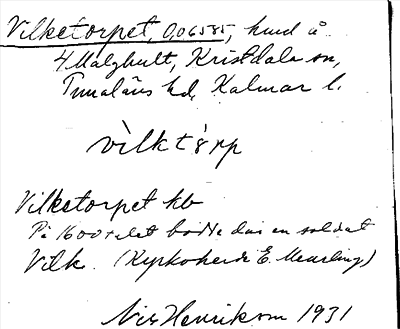 Vilketorpet, 0,06585, hmd å
4 Målghult, Kristdala sn,
Tunaläns hd, Kalmar l.
vìlktårp
Vilketorpet kb
På 1600-talet bodde där en soldat
Vilk. (Kyrkoherde E. Meurling)
Nils Henrikson 1931